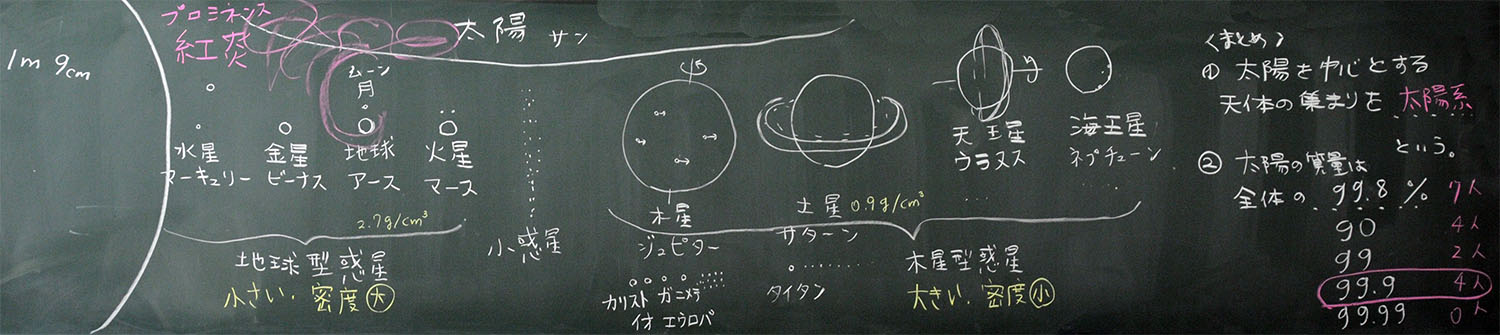 1m 9cm
プロミネンス
紅炎
太陽 サン
ムーン
月
水星
マーキュリー
金星
ビーナス
地球
アース
火星
マース
2.7g/cm³
地球型惑星
小さい、密度大
小惑星
木星
ジュピター
カリスト ガニメデ
イオ エウロパ
土星 0.9g/cm³
サターン
タイタン
天王星
ウラヌス
海王星
ネプチューン
木星型惑星
大きい、密度小
〈まとめ〉
① 太陽を中心とする
天体の集まりを 太陽系
という。
② 太陽の質量は
全体の 99.8 % 7人
90 4人
99 2人
99.9 4人
99.99 0人